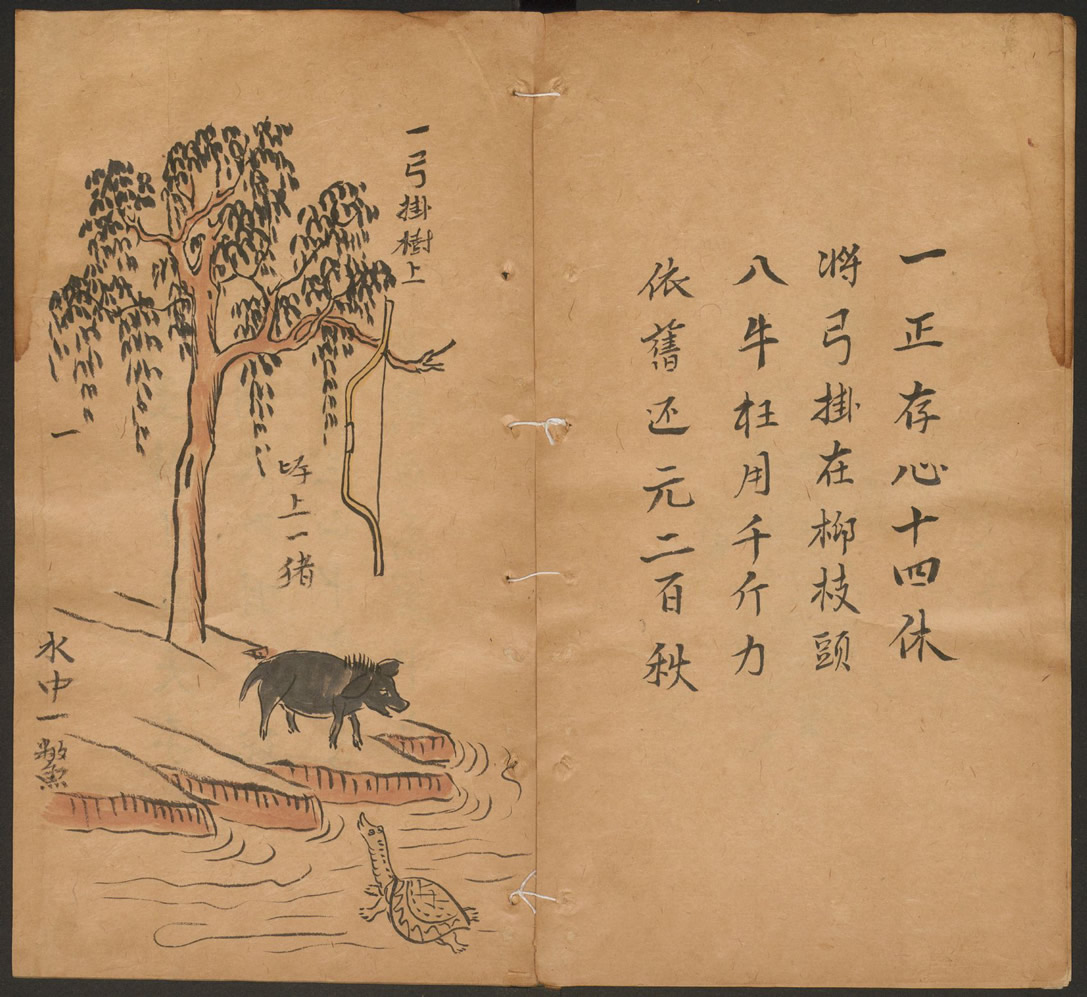 一正存心十四休
將弓掛在柳枝頭
八牛枉用千斤力
依舊还元二百秋
一弓掛樹上
岸上一猪
一
水中一鱉